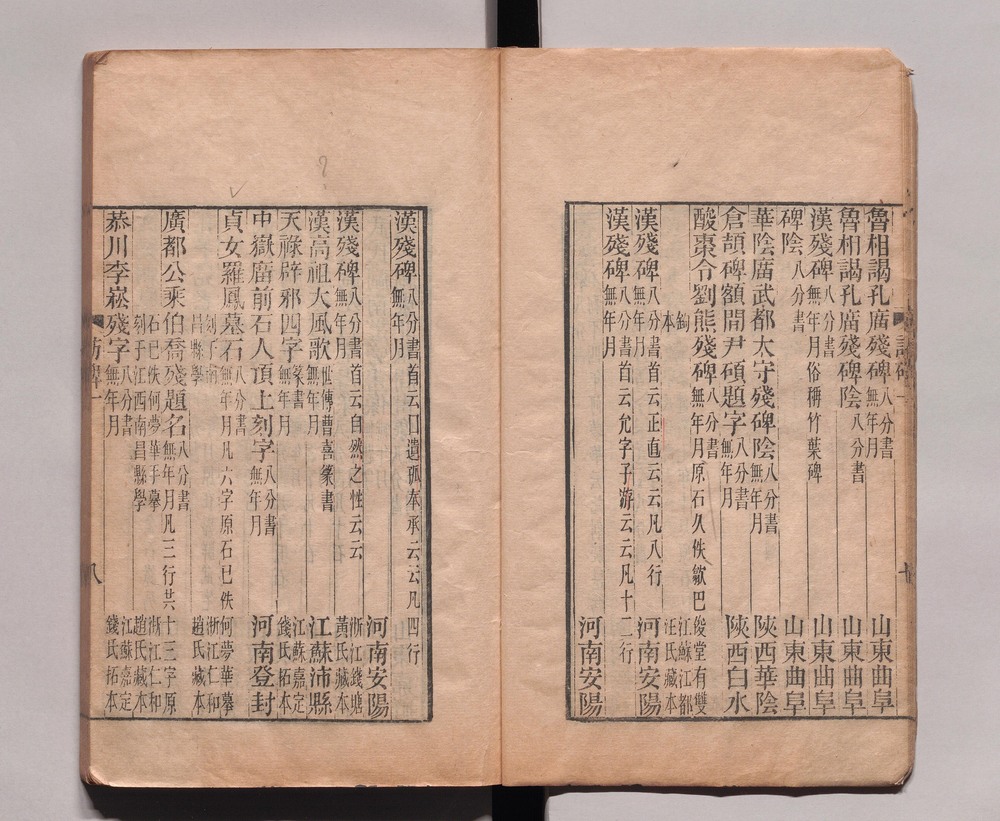 魯相謁孔廟殘碑八分書無年月 山東曲阜
魯相謁孔廟殘碑陰八分書 山東曲阜
漢殘碑八分書無年月俗稱竹葉碑 山東曲阜
碑陰八分書 山東曲阜
華陰廣武都太守殘碑陰八分書無年月 陝西華陰
倉頡碑額開尹碩題字八分書無年月 陝西白水
酸棗令劉熊殘碑八分書無年月原石久佚歙巴俊堂有雙
鉤本 江蘇江都汪氏藏本
漢殘碑八分書首云正直云云凡八行無年月 河南安陽
漢殘碑八分書首云允字子游云云凡十二行無年月 河南安陽
漢殘碑八分書首云口遺孤奉承云云凡四行無年月
河南安陽
漢殘碑八分書首云自然之性云云無年月 浙江錢塘黃氏藏本
漢高祖大風歌世傳曹喜篆書無年月 江蘇沛縣
天祿辟邪四字篆書無年月 江蘇嘉定錢氏拓本
中嶽廟前石人頂上刻字八分書無年月 河南登封
貞女羅鳳墓石八分書無年月凡六字原石已佚何夢華摹
刻于南昌縣學 浙江仁和趙氏藏本
廣都公乘伯喬殘題名八分書無年月凡三行共十三字原
石已佚何夢華手摹刻于江西南昌縣學 浙江仁和趙氏藏本
恭川李崧殘字八分書無年月 江蘇嘉定錢氏拓本
訪碑一
八